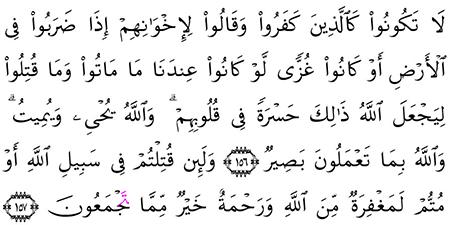 لَا تَكُونُوا۟ كَٱلَّذِينَ كَفَرُوا۟ وَقَالُوا۟ لِإِخْوَٰنِهِمْ إِذَا ضَرَبُوا۟ فِى
ٱلْأَرْضِ أَوْ كَانُوا۟ غُزًّى لَّوْ كَانُوا۟ عِندَنَا مَا مَاتُوا۟ وَمَا قُتِلُوا۟
لِيَجْعَلَ ٱللَّهُ ذَٰلِكَ حَسْرَةً فِى قُلُوبِهِمْ ۗ وَٱللَّهُ يُحْىِۦ وَيُمِيتُ ۗ
وَٱللَّهُ بِمَا تَعْمَلُونَ بَصِيرٌ ١٥٦ وَلَئِن قُتِلْتُمْ فِى سَبِيلِ ٱللَّهِ أَوْ
مُتُّمْ لَمَغْفِرَةٌ مِّنَ ٱللَّهِ وَرَحْمَةٌ خَيْرٌ مِّمَّا تَجْمَعُونَ ١٥٧